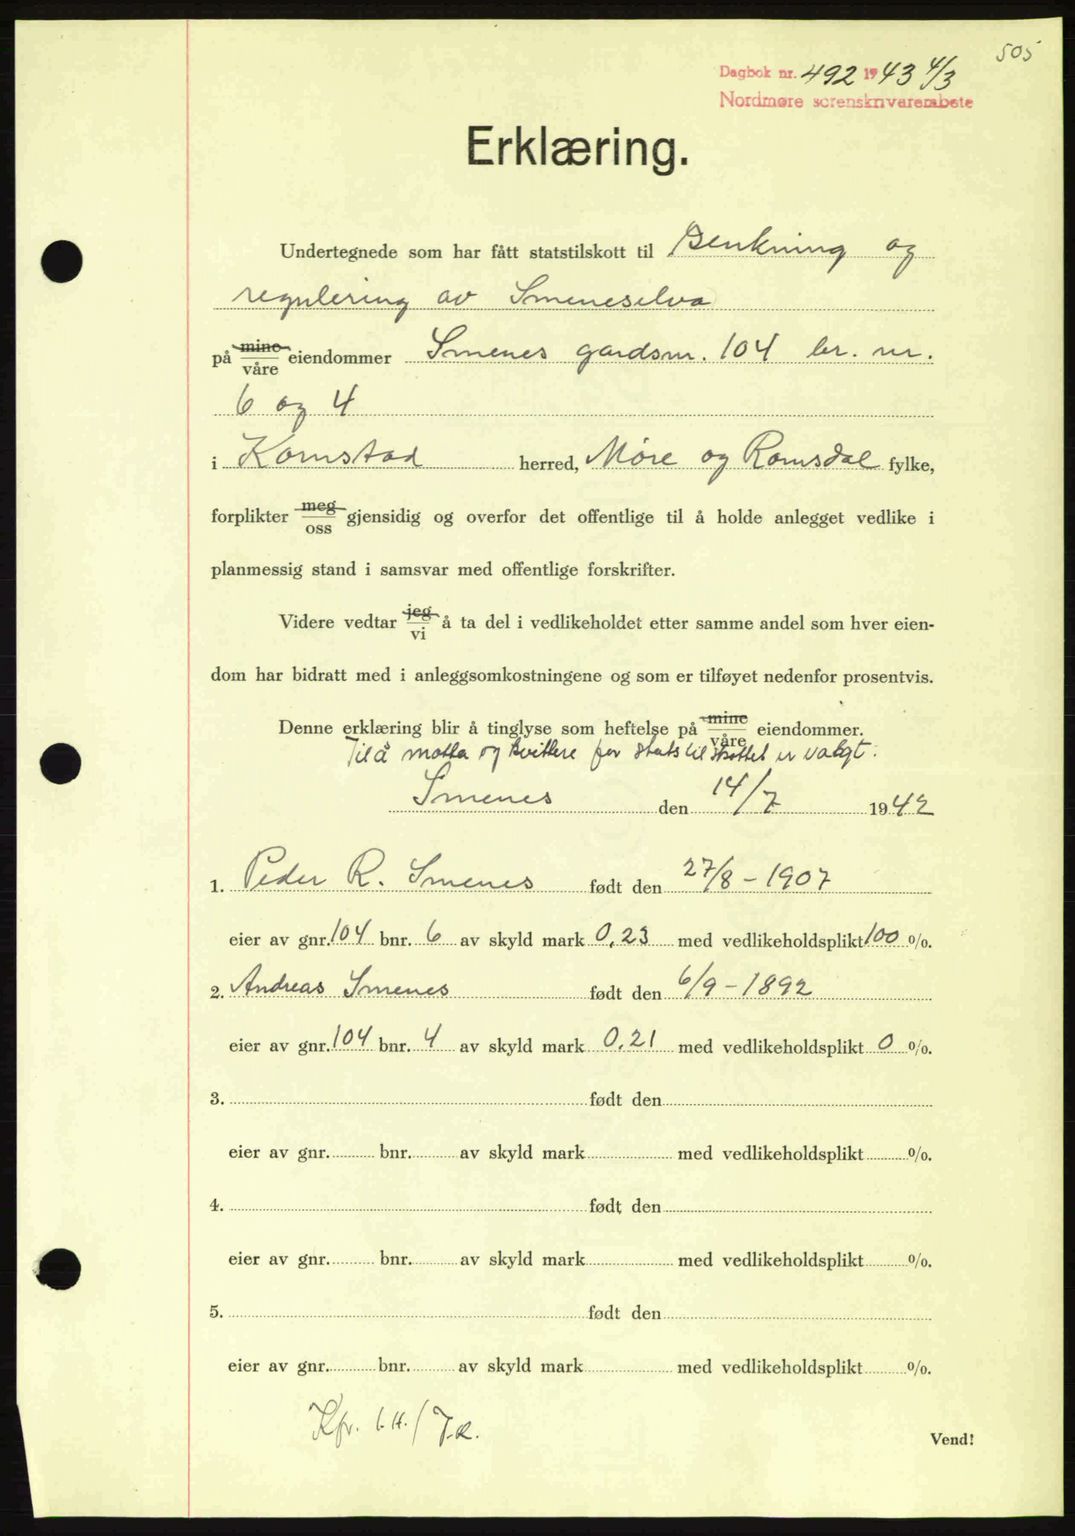 505
Dagbok nr. 492 1943 4/3
Nordmøre sorenskriverembete
Erklæring.
Undertegnede som har fått statstilskott til Senkning og
regulering av Smeneselva
på mine våre eiendommer Smenes gardsnr. 104 br. nr.
6 og 4
i Kornstad herred, Møre og Romsdal fylke,
forplikter meg oss gjensidig og overfor det offentlige til å holde anlegget vedlike i
planmessig stand i samsvar med offentlige forskrifter.
Videre vedtar jeg vi å ta del i vedlikeholdet etter samme andel som hver eien-
dom har bidratt med i anleggsomkostningene og som er tilføyet nedenfor prosentvis.
Denne erklæring blir å tinglyse som heftelse på mine våre eiendommer.
Til å motta og kvittere for statstilskottet er valgt:
Smenes den 14/7 1942
1. Peder R. Smenes født den 27/8 - 1907
eier av gnr. 104 bnr. 6 av skyld mark 0,23 med vedlikeholdsplikt 100 %.
2. Andreas Smenes født den 6/9 - 1892
eier av gnr. 104 bnr. 4 av skyld mark 0,21 med vedlikeholdsplikt 0 %.
3. født den
eier av gnr. bnr. av skyld mark med vedlikeholdsplikt %.
4. født den
eier av gnr. bnr. av skyld mark med vedlikeholdsplikt %.
5. født den
eier av gnr. bnr. av skyld mark med vedlikeholdsplikt %.
Kfr.
Vend!